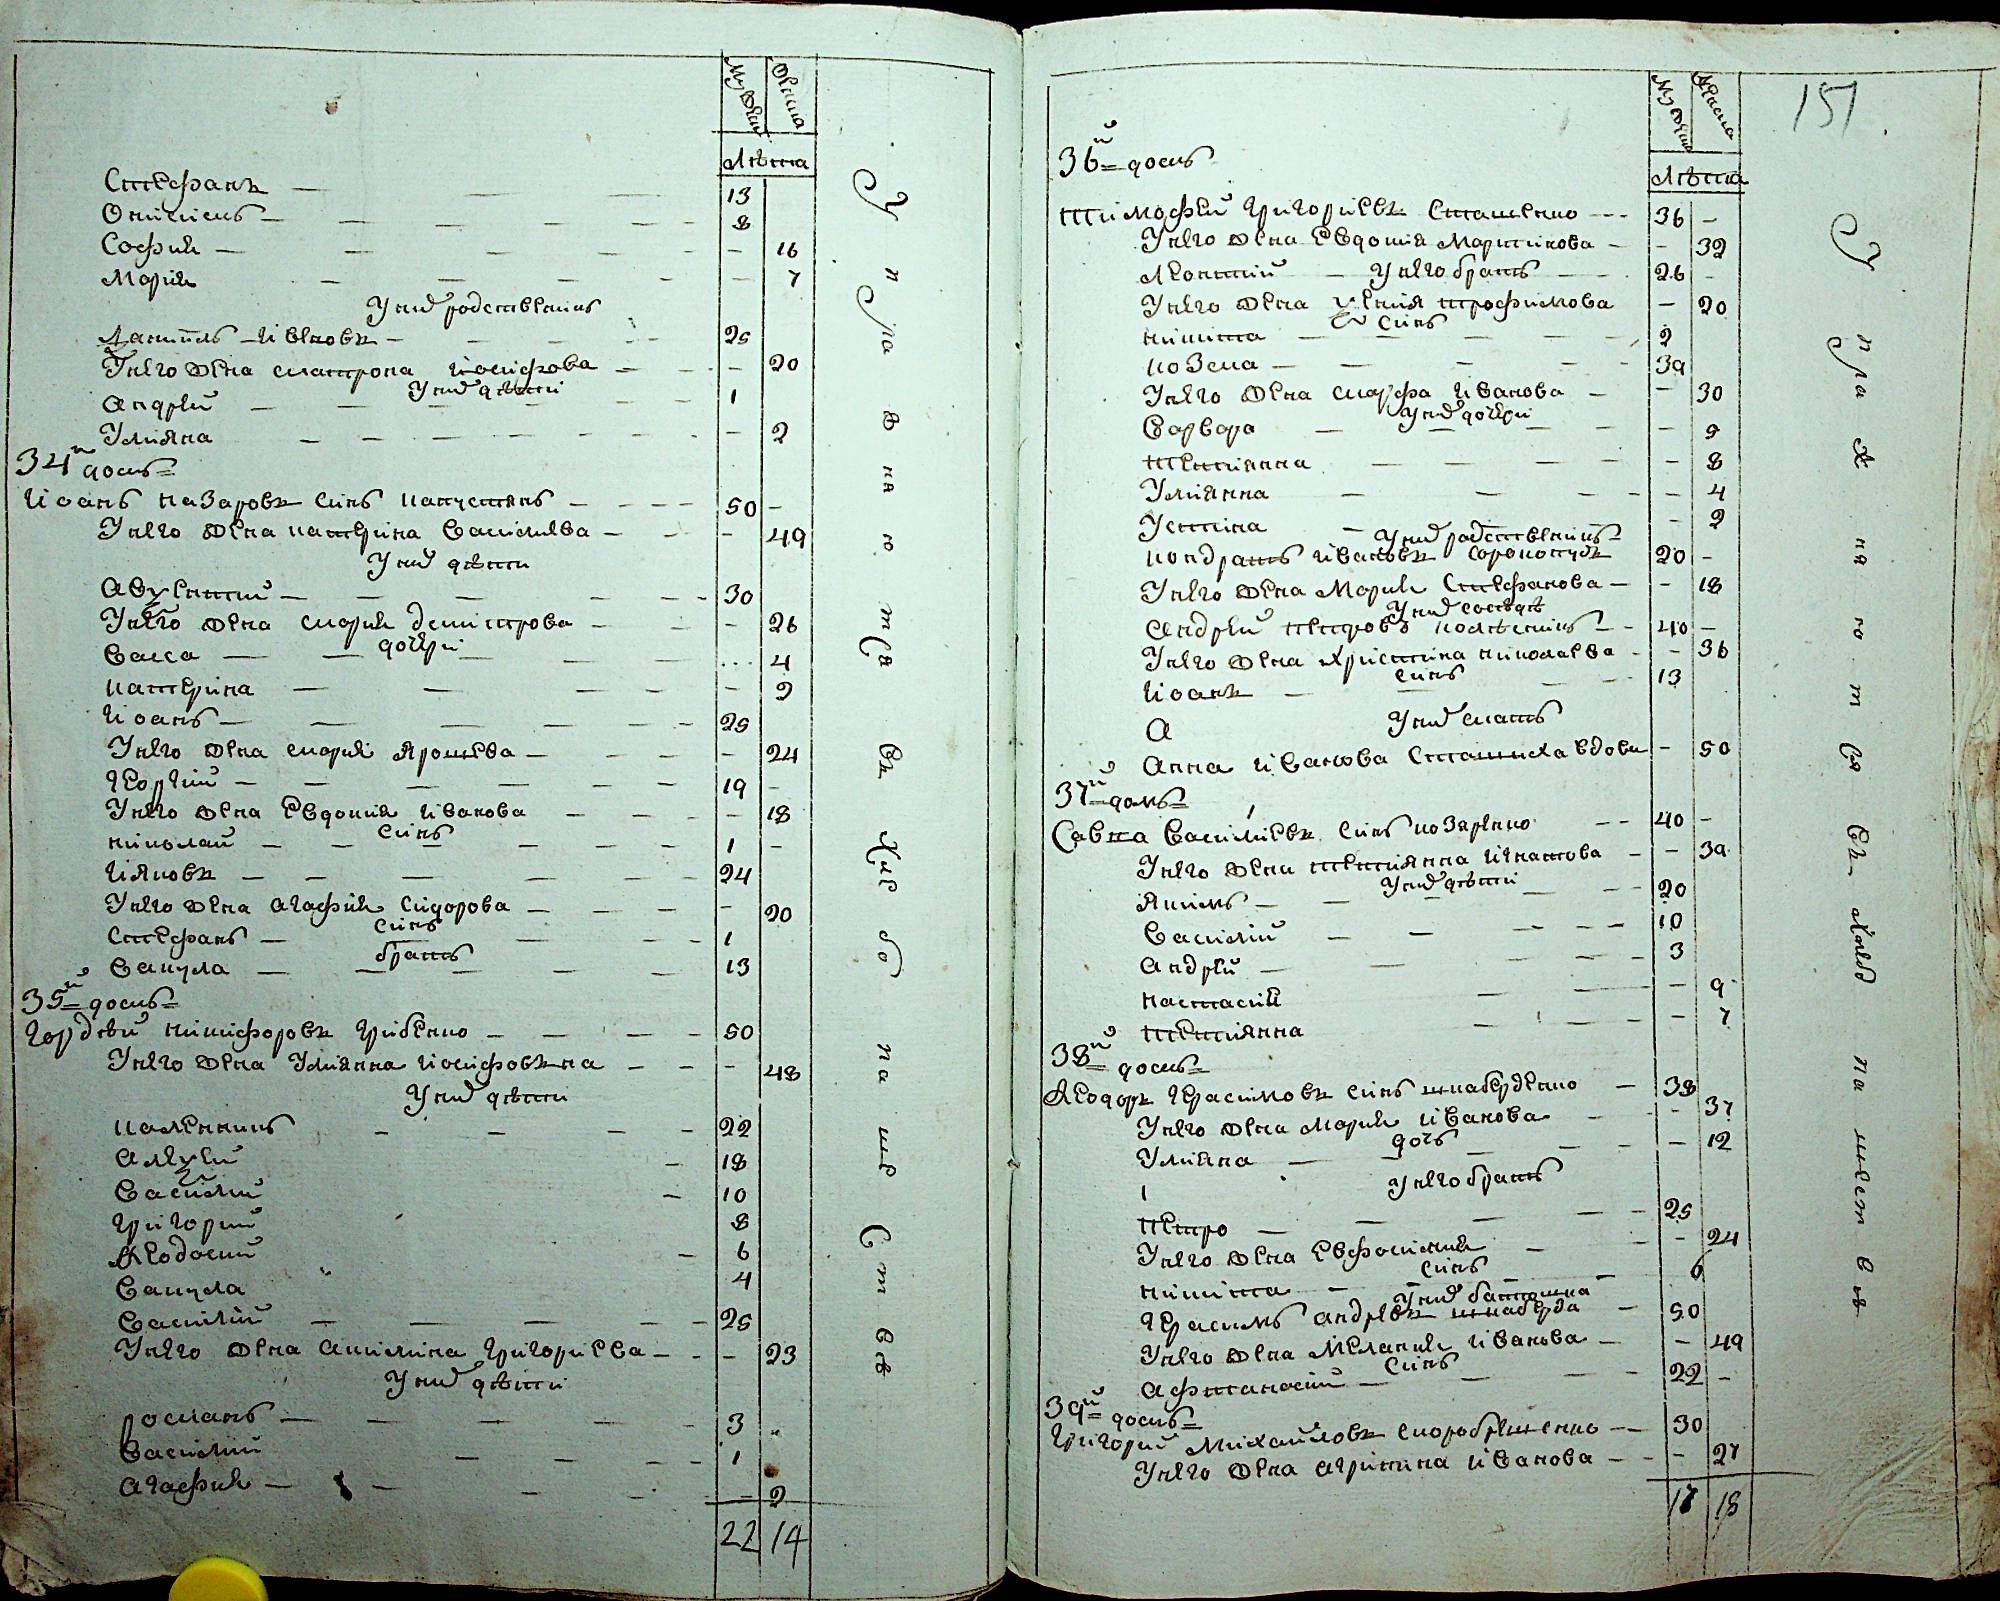 Мужеска Женска
Лѣта
Стефанъ 13
Онисимъ 8
София 16
Мария 7
У них родственникъ
Даниилъ Ивановъ 25
У него жена Матрона Иосифова 20
У них дѣти
Андрѣй 1
Улияна 2
34й домъ
Иоанъ Назаровъ синъ 50
У него жена Катерина Василиева 49
У них дѣти
Авѯентий 30
У него жена Мария Демитрова 26
дочери
Васса 4
Катерина 2
Иоанъ 25
У него жена Мария Ярошева 24
Георгий 19
У него жена Евдокия Иванова 18
синъ
Николай 1
Ияковъ 24
У него жена Агафия Сидорова 20
синъ
Стефанъ 1
братъ
Вакула 13
35й домъ
Гордѣй Никифоровъ Грибенко 50
У него жена Улиянна Иосифовъна 48
У них дѣти
Калѣнникъ 22
Алеѯѣй 18
Василий 10
Григорий 8
Ѳеодосий 6
Вакула 4
Василий 25
У него жена Акилина Григориева 23
У них дѣти
Романъ 3
Василий 1
Агафия 2
22 14
Упражняются въ хлебопашествѣ
Мужеска Женска
151
Лѣта
36й домъ
Тимофѣй Григориевъ Сташенко 36
У него жена Евдокия Мартинова 32
Леонтий У него братъ 26
У него жена Ѯения Трофимова 20
синъ
Никита 2
Козма 32
У него жена Марфа Иванова 30
У них дочери
Варвара 9
Тетиянна 8
Улиянна 4
Устина 2
У них родственникъ
Кондратъ Ивановъ Сорокопудъ 20
У него жена Мария Стефанова 18
У них сосѣдъ
Андрѣй Петровъ 40
У него жена Христина Николаева 36
синъ
Иоанъ 13
У них мать
А
Анна Иванова Сташиха вдова 50
37й домъ
Савка Василиевъ синъ Козяренко 40
У него жена Тетиянна Игнатова 39
У них дѣти
Якимъ 20
Василий 10
Андрѣй 3
Настасия 9
Тетиянна 7
38й домъ
Ѳеодоръ Герасимовъ синъ Шкаберденко 38
У него жена Мария Иванова 37
дочь
Улияна 12
У него братъ
Петро 25
У него жена Евфосиния 24
синъ
Никита 6
У них батюшка
Герасимъ Андрѣевъ Шкаберда 50
У него жена Мелания Иванова 49
синъ
Афтанасий 22
39й домъ
Григорий Михайловъ Скоробрешенко 30
У него жена Агрипина Иванова 27
17 18
Упражняются въ хлѣбопашествѣ